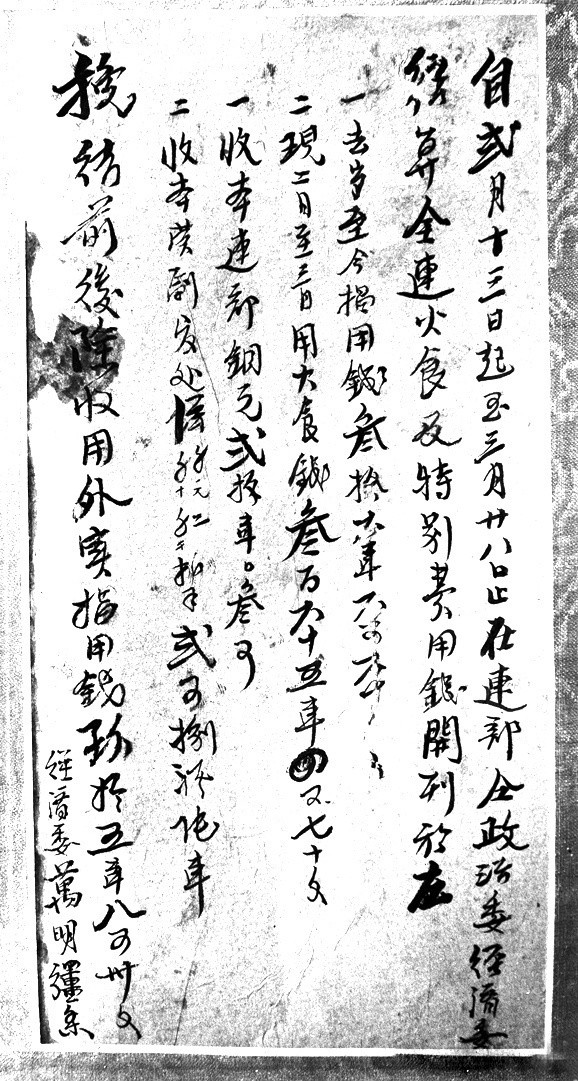 自弍月十三日起至三月廿八日止在連部仝政治委經濟委
結算全連火食及特別費用錢開列於左
一去岁至今揭用錢叁拾六串六百
二現二月至三月用火食錢叁百六十五串四百七十文
一收本連部銅元弍拾串〇叁百
二收本漢副官处 弍百捌拾陆串
總結前後除收用外實揭用錢玖拾五串八百卅文
經濟委萬明彊条